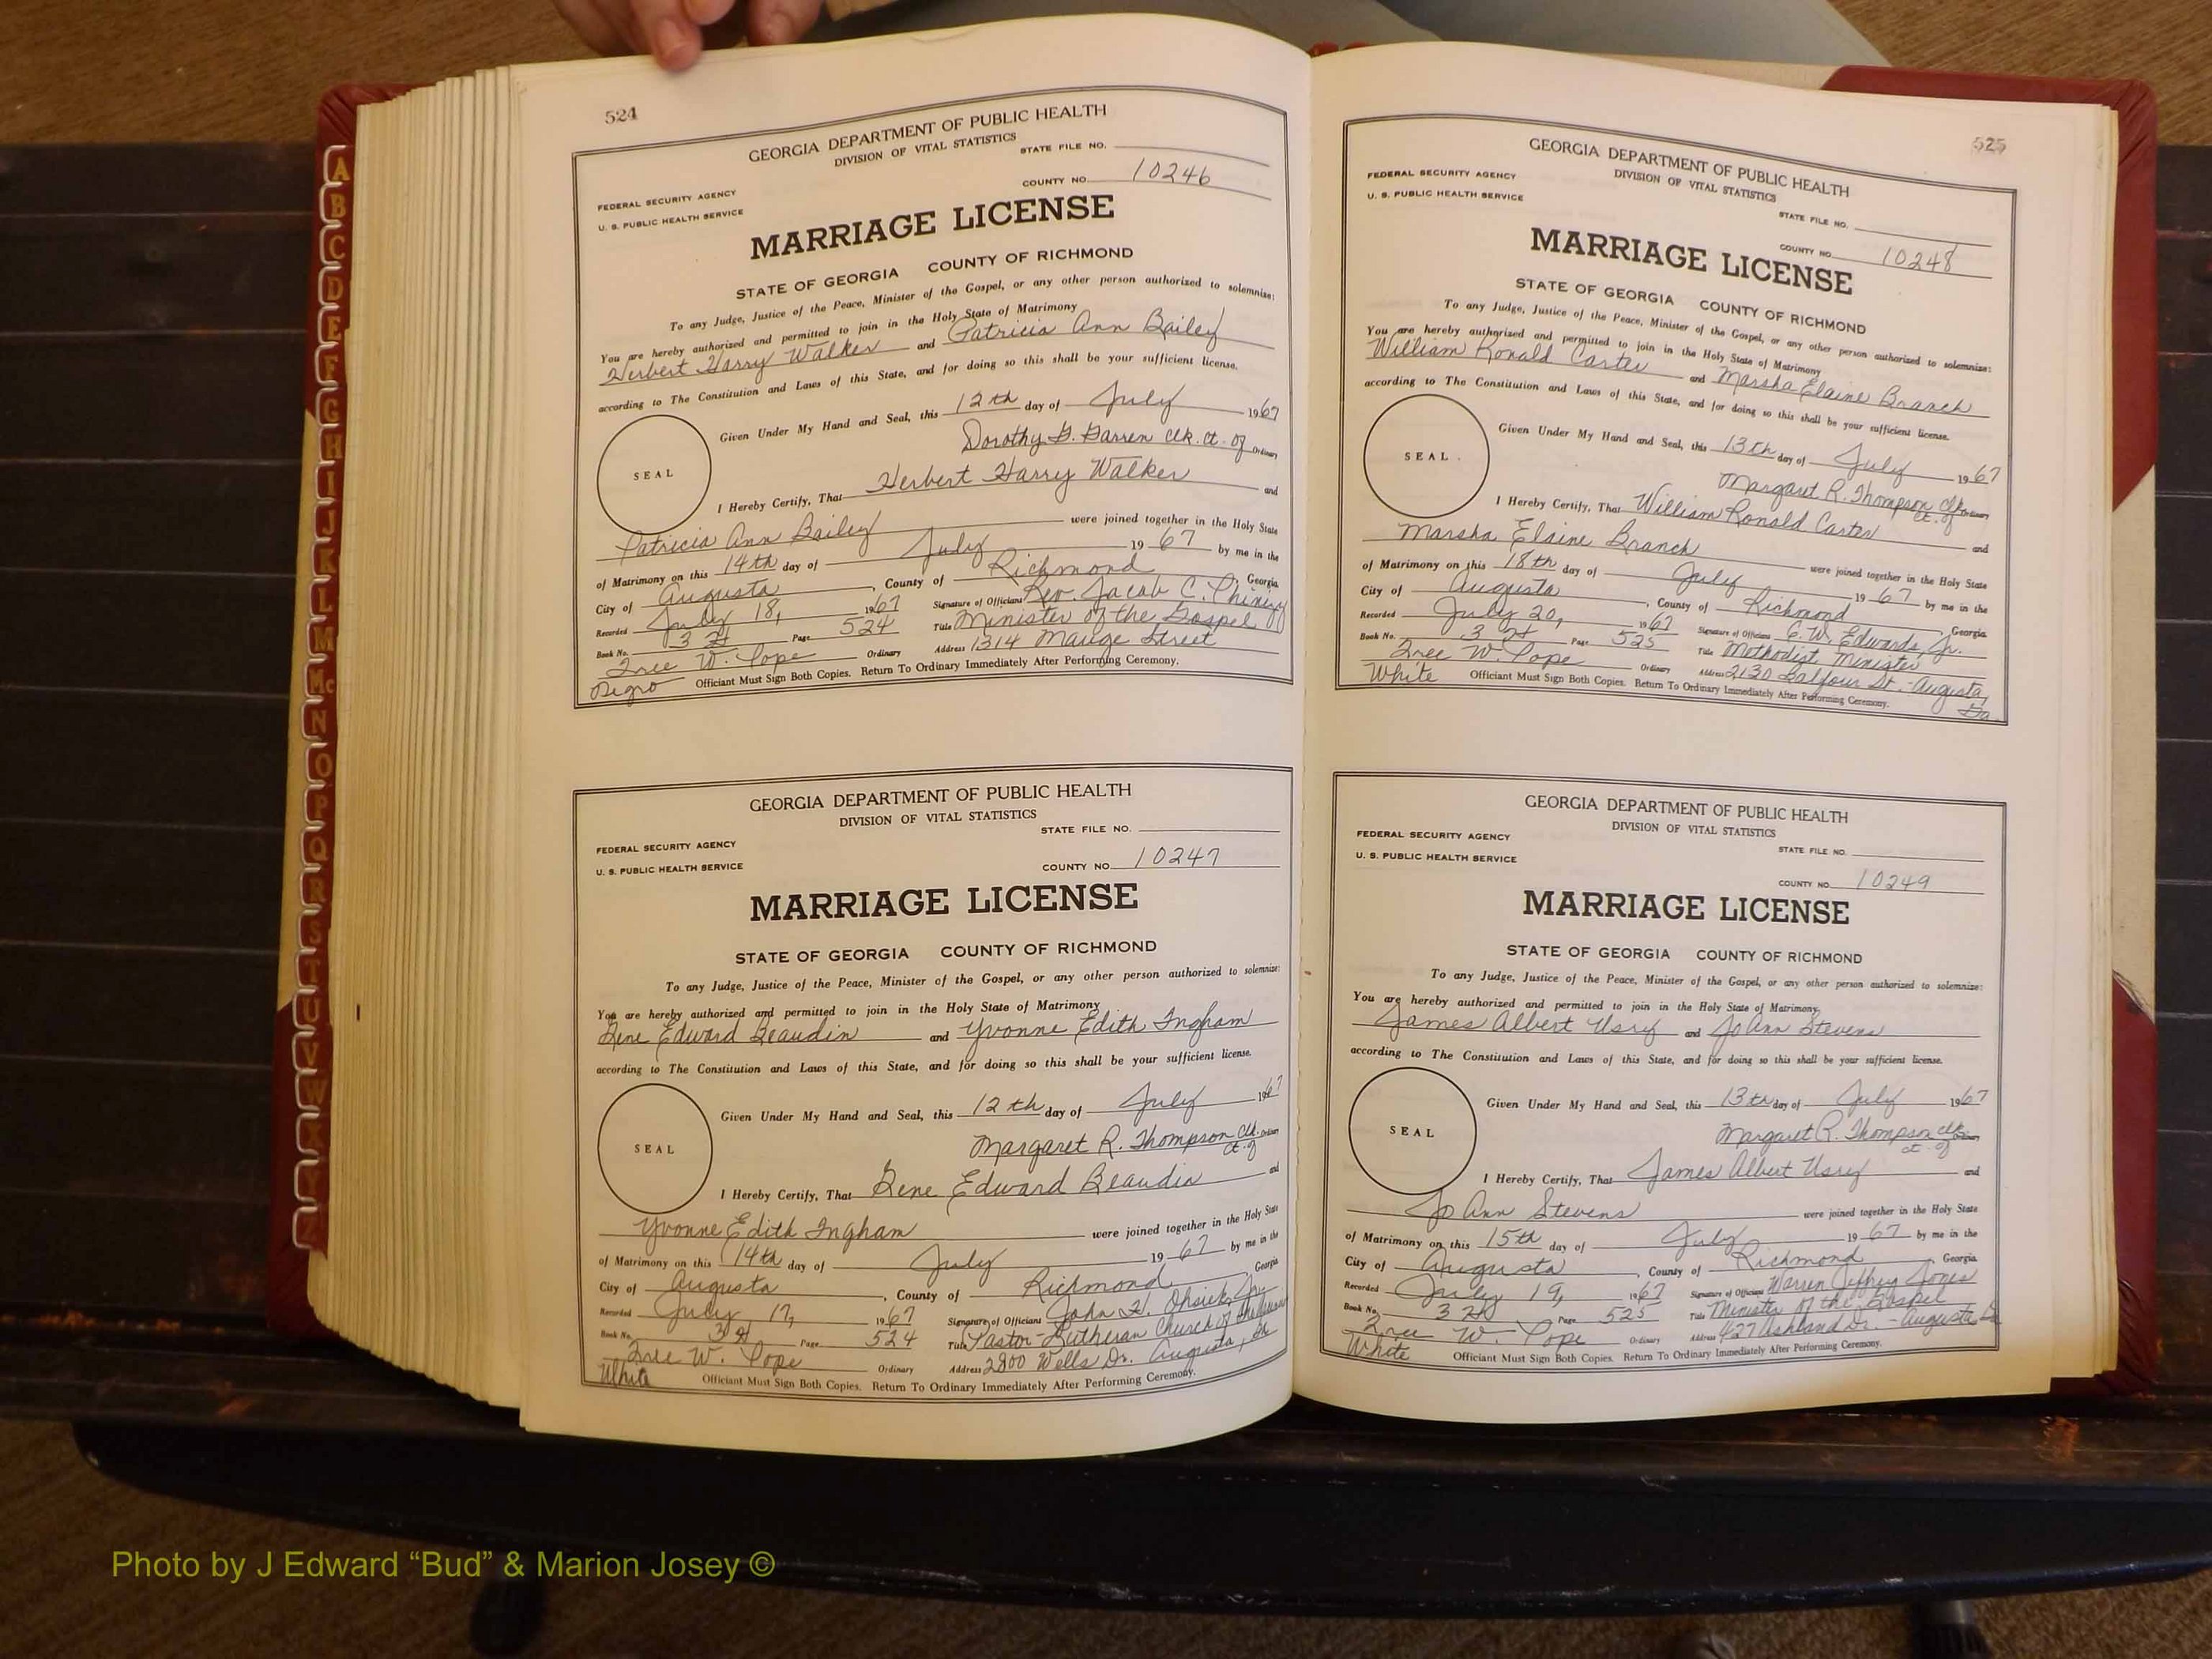 524
GEORGIA DEPARTMENT OF PUBLIC HEALTH
DIVISION OF VITAL STATISTICS
STATE FILE NO.
FEDERAL SECURITY AGENCY
COUNTY NO. 10246
U. S. PUBLIC HEALTH SERVICE
MARRIAGE LICENSE
STATE OF GEORGIA COUNTY OF RICHMOND
To any Judge, Justice of the Peace, Minister of the Gospel, or any other person authorized to solemnize:
You are hereby authorized and permitted to join in the Holy State of Matrimony
Herbert Harry Walker and Patricia Ann Bailey
according to The Constitution and Laws of this State, and for doing so this shall be your sufficient license.
Given Under My Hand and Seal, this 12th day of July 1967
Dorothy G. Garren Clk. Ct. of Ordinary
SEAL
I Hereby Certify, That Herbert Harry Walker and
Patricia Ann Bailey were joined together in the Holy State
of Matrimony on this 14th day of July 1967 by me in the
City of Augusta, County of Richmond, Georgia
Recorded July 18, 1967 Signature of Officiant Rev. Jacob C. Phinizy
Book No. 3 Page 524 Title Minister of the Gospel
Free W. Pope Ordinary Address 1314 Mauge Street
Negro Officiant Must Sign Both Copies. Return To Ordinary Immediately After Performing Ceremony.
GEORGIA DEPARTMENT OF PUBLIC HEALTH
DIVISION OF VITAL STATISTICS
STATE FILE NO.
FEDERAL SECURITY AGENCY
COUNTY NO. 10247
U. S. PUBLIC HEALTH SERVICE
MARRIAGE LICENSE
STATE OF GEORGIA COUNTY OF RICHMOND
To any Judge, Justice of the Peace, Minister of the Gospel, or any other person authorized to solemnize:
You are hereby authorized and permitted to join in the Holy State of Matrimony
Rene Edward Beaudin and Yvonne Edith Ingham
according to The Constitution and Laws of this State, and for doing so this shall be your sufficient license.
Given Under My Hand and Seal, this 12th day of July 1967
Margaret R. Thompson Clk. Ct. of Ordinary
SEAL
I Hereby Certify, That Rene Edward Beaudin and
Yvonne Edith Ingham were joined together in the Holy State
of Matrimony on this 14th day of July 1967 by me in the
City of Augusta, County of Richmond, Georgia
Recorded July 17, 1967 Signature of Officiant John H. Jr.
Book No. 3 Page 524 Title Pastor-Lutheran Church of the
Free W. Pope Ordinary Address 2800 Wells Dr. Augusta, Ga
White Officiant Must Sign Both Copies. Return To Ordinary Immediately After Performing Ceremony.
525
GEORGIA DEPARTMENT OF PUBLIC HEALTH
DIVISION OF VITAL STATISTICS
FEDERAL SECURITY AGENCY
U. S. PUBLIC HEALTH SERVICE
STATE FILE NO.
COUNTY NO. 10248
MARRIAGE LICENSE
STATE OF GEORGIA COUNTY OF RICHMOND
To any Judge, Justice of the Peace, Minister of the Gospel, or any other person authorized to solemnize:
You are hereby authorized and permitted to join in the Holy State of Matrimony
William Ronald Carter and Marsha Elaine Branch
according to The Constitution and Laws of this State, and for doing so this shall be your sufficient license.
Given Under My Hand and Seal, this 13th day of July 1967
Margaret R. Thompson Clk. Ct. of Ordinary
SEAL
I Hereby Certify, That William Ronald Carter and
Marsha Elaine Branch were joined together in the Holy State
of Matrimony on this 18th day of July 1967 by me in the
City of Augusta, County of Richmond, Georgia
Recorded July 20, 1967 Signature of Officiant C. W. Edwards, Jr.
Book No. 3 Page 525 Title Methodist Minister
Free W. Pope Ordinary Address 2130 Balfour St. - Augusta, Ga.
White Officiant Must Sign Both Copies. Return To Ordinary Immediately After Performing Ceremony.
GEORGIA DEPARTMENT OF PUBLIC HEALTH
DIVISION OF VITAL STATISTICS
FEDERAL SECURITY AGENCY
STATE FILE NO.
U. S. PUBLIC HEALTH SERVICE
COUNTY NO. 10249
MARRIAGE LICENSE
STATE OF GEORGIA COUNTY OF RICHMOND
To any Judge, Justice of the Peace, Minister of the Gospel, or any other person authorized to solemnize:
You are hereby authorized and permitted to join in the Holy State of Matrimony
James Albert Usry and Jo Ann Stevens
according to The Constitution and Laws of this State, and for doing so this shall be your sufficient license.
Given Under My Hand and Seal, this 13th day of July 1967
Margaret R. Thompson Clk. Ct. of Ordinary
SEAL
I Hereby Certify, That James Albert Usry and
Jo Ann Stevens were joined together in the Holy State
of Matrimony on this 15th day of July 1967 by me in the
City of Augusta, County of Richmond, Georgia
Recorded July 19, 1967 Signature of Officiant Warren Jeffrey Jones
Book No. 3 Page 525 Title Minister of the Gospel
Free W. Pope Ordinary Address 427 Ashland Dr. - Augusta Ga
White Officiant Must Sign Both Copies. Return To Ordinary Immediately After Performing Ceremony.
A
B
C
D
E
F
G
H
I
J
K
L
M
Mc
N
O
P
Q
R
S
T
U
V
W
X
Y
Z
Photo by J Edward “Bud” & Marion Josey ©